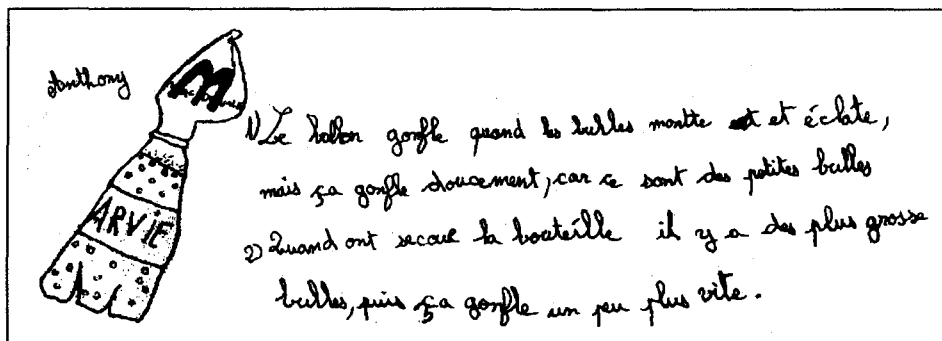 Anthony
M
1) Le ballon gonfle quand les bulles montte et éclate,
mais ça gonfle doucement, car ce sont des petites bulles
ARVIE
2) Quand ont secoue la bouteille il y a des plus grosse
bulles, puis ça gonfle un peu plus vite.